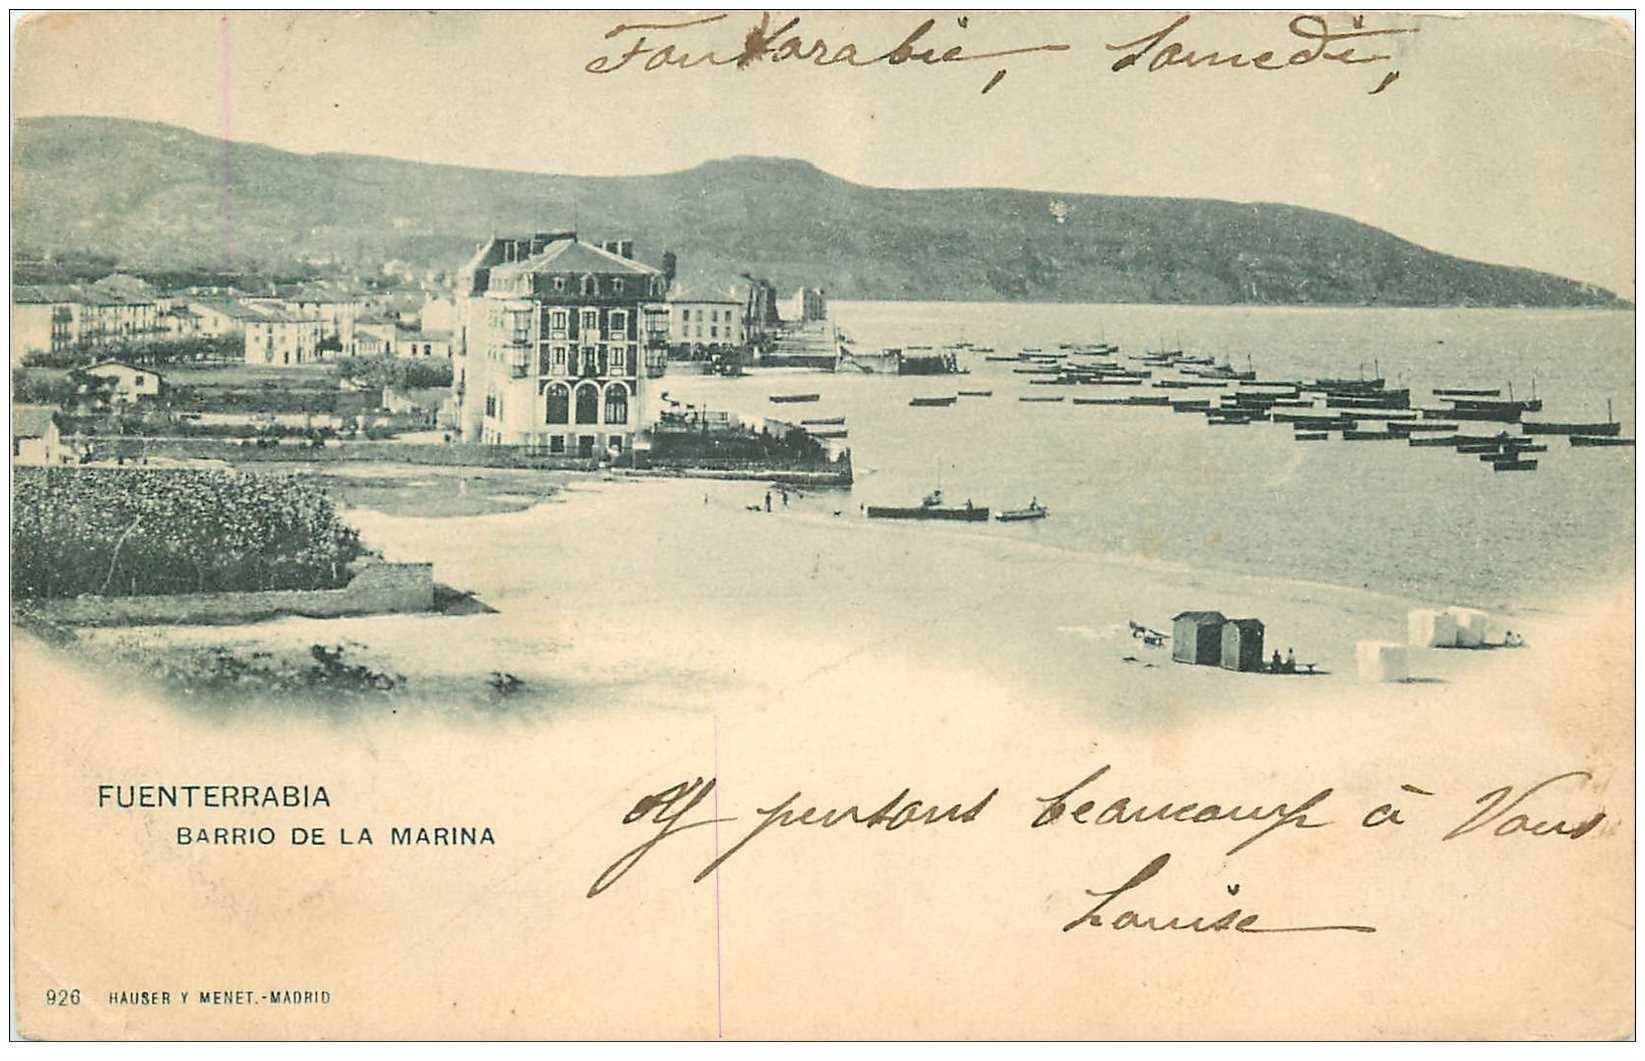 Fontarabie, Samedi,
FUENTERRABIA
BARRIO DE LA MARINA
pensons beaucoup à Vous
Louise
926 HAUSER Y MENET.-MADRID